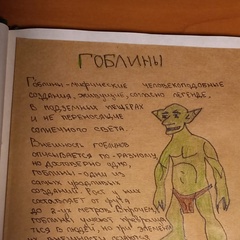 ГОБЛИНЫ
ГОБЛИНЫ - МИФИЧЕСКИЕ ЧЕЛОВЕКОПОДОБНЫЕ
СОЗДАНИЯ, ЖИВУЩИЕ, СОГЛАСНО ЛЕГЕНДЕ,
В ПОДЗЕМНЫХ ПЕЩЕРАХ
И НЕ ПЕРЕНОСЯЩИЕ
СОЛНЕЧНОГО СВЕТА.
ВНЕШНОСТЬ ГОБЛИНОВ
ОПИСЫВАЕТСЯ ПО-РАЗНОМУ
НО ДОСТОВЕРНО ОДНО,
ГОБЛИНЫ - ОДНИ ИЗ
САМЫХ УРОДЛИВЫХ
СОЗДАНИЙ. РОСТ У НИХ
СОСТАВЛЯЕТ ОТ ФУТА
ДО 2-УХ МЕТРОВ. ВПРОЧЕМ
ГОБЛИНЫ УМЕЮТ ПРЕВРАЩА
ТЬСЯ В ЛЮДЕЙ, НО ТРИ ЭЛЕМЕНТА
ВНЕШНОСТИ